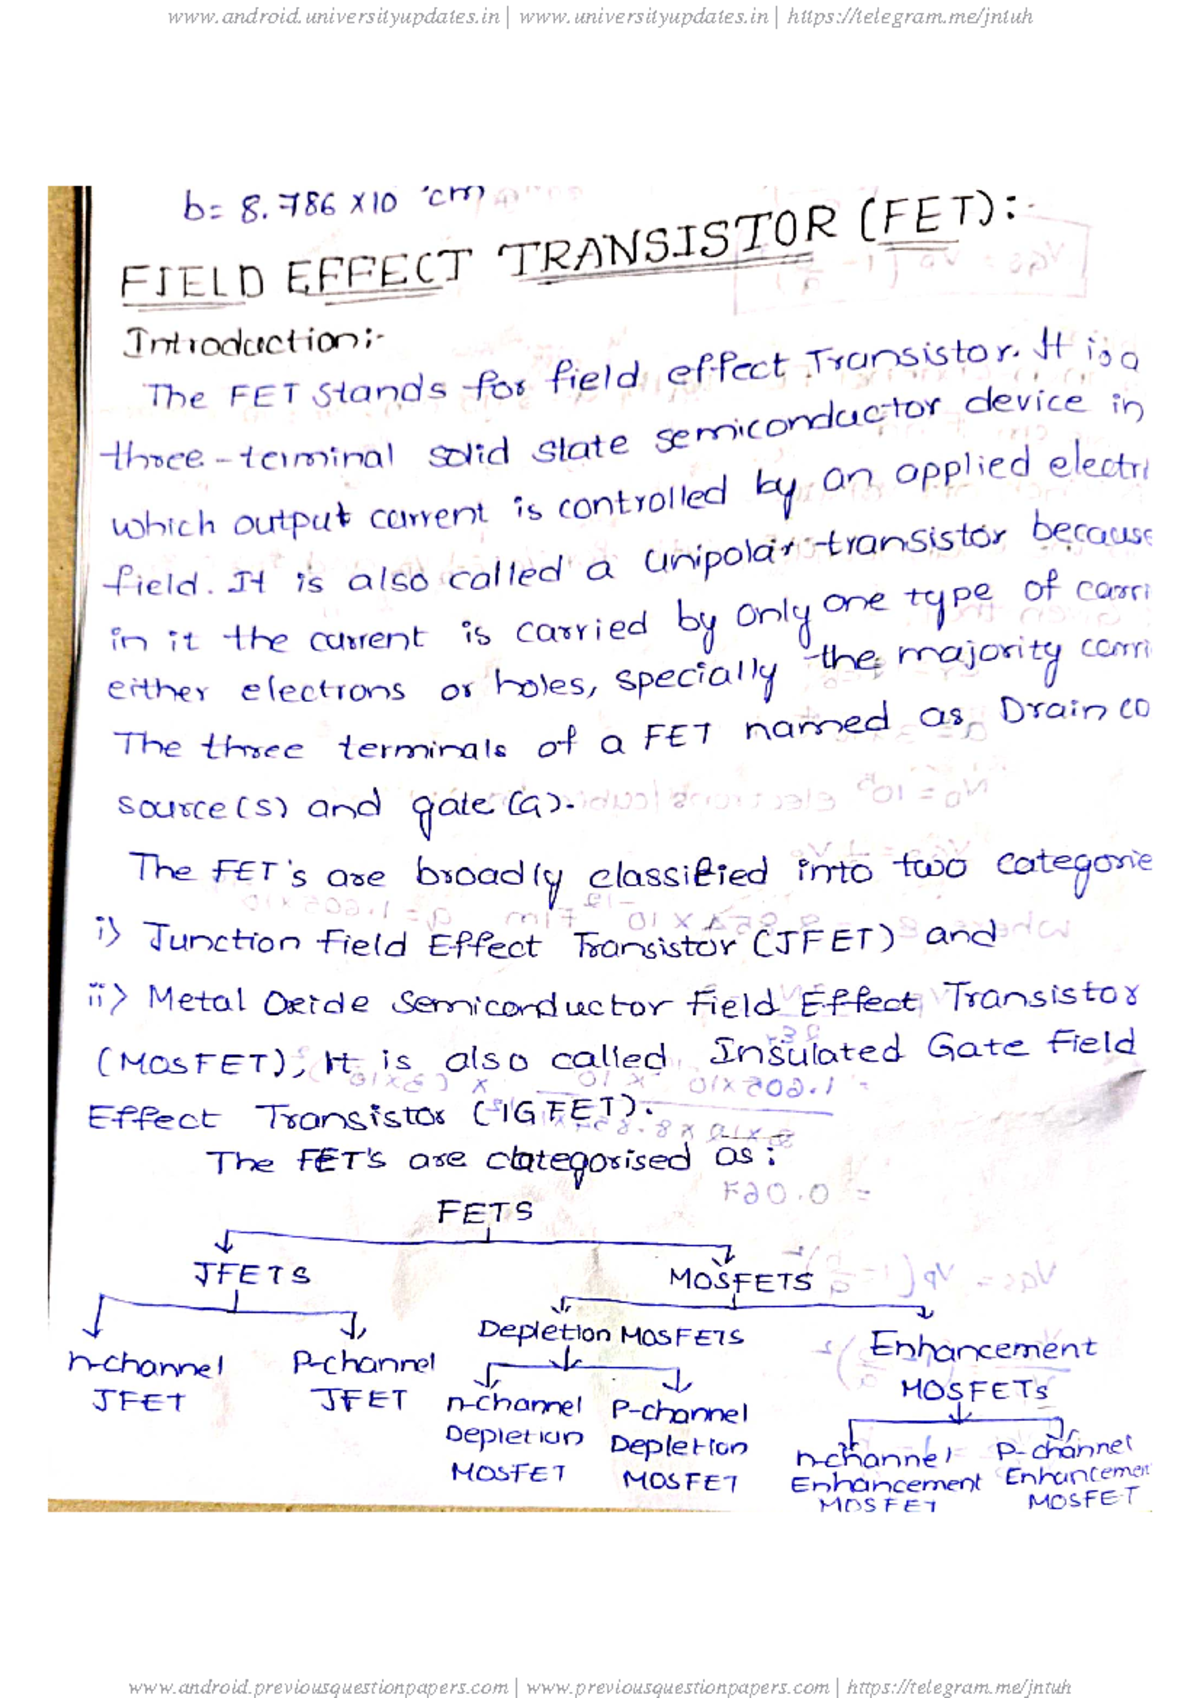 www.android.universityupdates.in | www.universityupdates.in | https://telegram.me/jntuh
b= 8.786 X10 cm
FIELD EFFECT TRANSISTOR (FET):-
Introduction:-
The FET Stands for field effect Transistor. It is a
three-terminal solid state semiconductor device in
which output current is controlled by an applied electri
field. It is also called a unipolar transistor because
in it the current is carried by only one type of carri
either electrons or holes, specially the majority carri
The three terminals of a FET named as Drain co
source(s) and gate (G).
The FET's are broadly classified into two categorie
i) Junction Field Effect Transistor (JFET) and
ii) Metal Oxide Semiconductor Field Effect Transistor
(MOSFET), It is also called Insulated Gate Field
Effect Transistor (IGFET).
The FET's are categorised as:
FETS
JFETS MOSFETS
Depletion MOSFETS Enhancement
MOSFETs
n-channel P-channel
JFET JFET
n-channel P-channel
Depletion Depletion
MOSFET MOSFET
n-channel P-channel
Enhancement Enhancemen
MOSFET MOSFET
www.android.previousquestionpapers.com | www.previousquestionpapers.com | https://telegram.me/jntuh